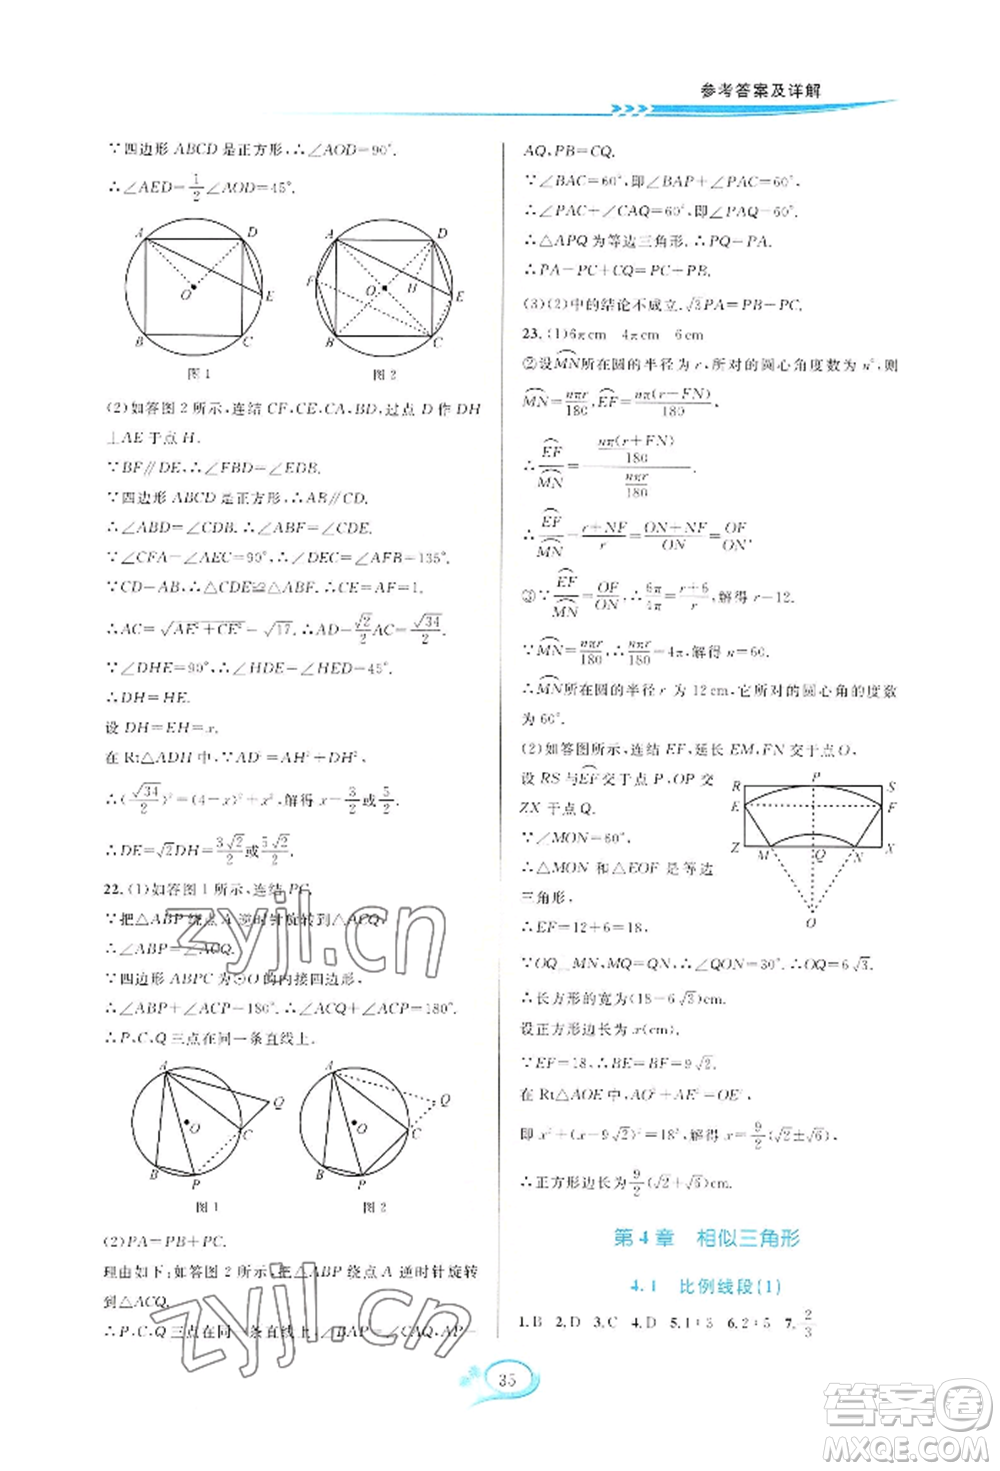 参考答案及详解
∵四边形 ABCD 是正方形,∴∠AOD=90°.
∴∠AED=1/2∠AOD=45°.
A D O E B C
图 1
A D F O H E B C
图 2
(2)如答图 2 所示,连结 CF,CE,CA,BD,过点 D 作 DH
⊥AE 于点 H.
∵BF∥DE,∴∠FBD=∠EDB.
∵四边形 ABCD 是正方形,∴AB∥CD.
∴∠ABD=∠CDB.∴∠ABF=∠CDE.
∵∠CFA=∠AEC=90°,∴∠DEC=∠AFB=135°.
∵CD=AB,∴△CDE≌△ABF.∴CE=AF=1.
∴AC=√(AE²+CE²)=√17.∴AD=√2/2 AC=√34/2.
∵∠DHE=90°,∴∠HDE=∠HED=45°.
∴DH=HE.
设 DH=EH=x.
在 Rt△ADH 中,∵AD²=AH²+DH²,
∴(√34/2)²=(4-x)²+x²,解得 x=3/2或5/2.
∴DE=√2DH=3√2/2或5√2/2.
22.(1)如答图 1 所示,连结 PC.
∵把△ABP 绕点 A 逆时针旋转到△ACQ,
∴∠ABP=∠ACQ.
∵四边形 ABPC 为⊙O 的内接四边形,
∴∠ABP+∠ACP=180°.∴∠ACQ+∠ACP=180°.
∴P,C,Q 三点在同一条直线上.
A Q O C B P
图 1
A Q O C B P
图 2
(2)PA=PB+PC.
理由如下:如答图 2 所示,把△ABP 绕点 A 逆时针旋转
到△ACQ.
∴P,C,Q 三点在同一条直线上,∠BAP=∠CAQ,AP=
AQ,PB=CQ.
∵∠BAC=60°,即∠BAP+∠PAC=60°,
∴∠PAC+∠CAQ=60°,即∠PAQ=60°.
∴△APQ 为等边三角形.∴PQ=PA.
∴PA=PC+CQ=PB+PC.
(3)(2)中的结论不成立.√2PA=PB+PC.
23.(1)6πcm 4πcm 6cm
②设MN所在圆的半径为 r,所对的圆心角度数为 n°,则
MN=nπr/180,EF=nπ(r+FN)/180.
∴EF/MN=(nπ(r+FN)/180)/(nπr/180).
∴EF/MN=(r+NF)/r=(ON+NF)/ON=OF/ON.
③∵EF/MN=OF/ON,∴6π/4π=(r+6)/r,解得 r=12.
∵MN=nπr/180,∴nπr/180=4π,解得 n=60.
∴MN所在圆的半径 r 为 12cm,它所对的圆心角的度数
为 60°.
(2)如答图所示,连结 EF,延长 EM,FN 交于点 O,
设 RS 与EF交于点 P,OP 交
ZX 于点 Q.
∵∠MON=60°,
∴△MON 和△EOF 是等边
三角形.
R P S E F Z M Q N X O
∴EF=12+6=18.
∵OQ⊥MN,∴∠MOQ=∠NOQ=30°.∴OQ=6√3.
∴长方形的宽为(18-6√3)cm.
设正方形边长为 x(cm)
∵EF=18,∴BE=BF=9√2.
在 Rt△AOE 中,AO²+AE²=OE²,
即 x²+(x-9√2)²=18²,解得 x=9/2(√2±√6),
∴正方形边长为9/2(√2+√6)cm.
第 4 章 相似三角形
4.1 比例线段(1)
1.B 2.D 3.C 4.D 5.1∶3 6.2∶5 7.2/3
35
zyjl.cn
zyjl.cn
答案圈
MXQE.COM